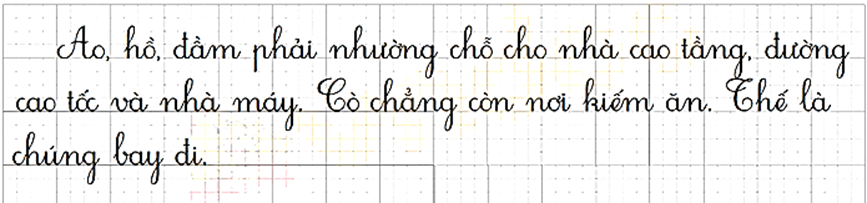 Ao, hồ, đầm phải nhường chỗ cho nhà cao tầng, đường
cao tốc và nhà máy. Cò chẳng còn nơi kiếm ăn. Thế là
chúng bay đi.